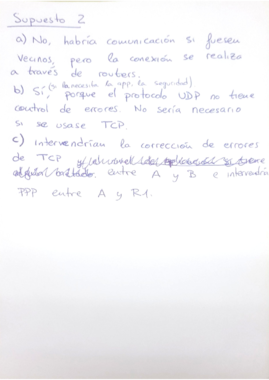 Supuesto 2
a) No, habría comunicación si fuesen
vecinos, pero la conexión se realiza
a través de routers.
(si la necesita la app. la seguridad)
b) Sí, porque el protocolo UDP no tiene
control de errores. No sería necesario
si se usase TCP.
c) Intervendrían la corrección de errores
de TCP
entre A y B e intervendría
PPP entre A y R1.